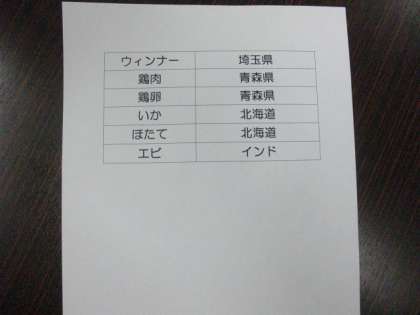 ウィンナー 埼玉県
鶏肉 青森県
鶏卵 青森県
いか 北海道
ほたて 北海道
エビ インド